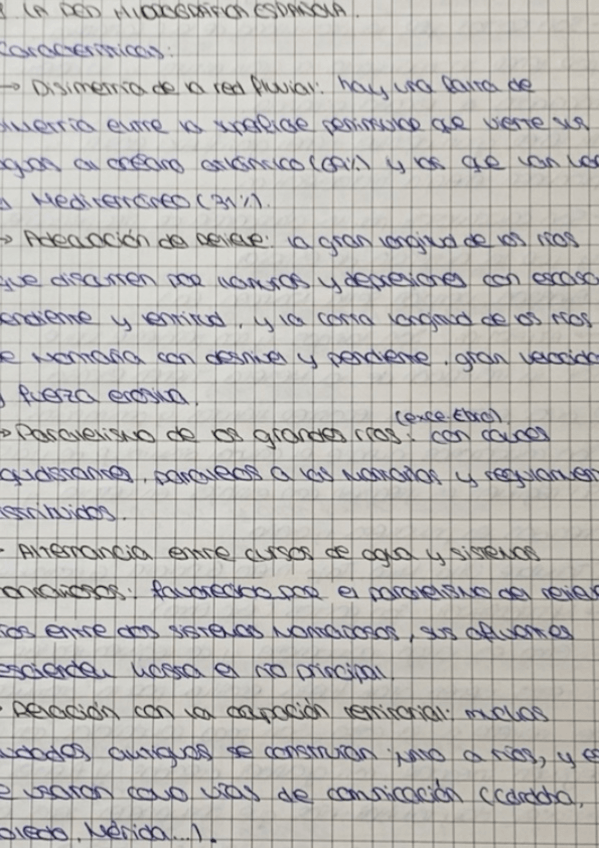 LA RED HIDROGRÁFICA ESPAÑOLA.
Características:
→ Disimetría de la red fluvial: hay una
entre la superficie peninsular que vierte sus
aguas al océano atlántico (69%) y las que van
Mediterráneo (31%).
→ Adecuación de relieve: la gran longitud de los ríos
que discurren por llanuras y depresiones con escasa
pendiente y, y la corta longitud de los ríos
de montaña con desnivel y pendiente, gran velocida
y fuerza erosiva.
(exce. Ebro)
→ Paralelismo de los grandes ríos: con cauces
, paralelos a las montañas y regularmen
distribuidos.
- Alternancia entre cursos de agua y sistemas
montañosos: favorecida por el paralelismo del relieve
ríos entre dos sistemas montañosos, sus afluentes
descienden hasta el río principal.
- Relación con la ocupación territorial: muchas
ciudades antiguas se construían junto a ríos, y
se usaron como vías de comunicación (Córdoba,
Toledo, Mérida...).